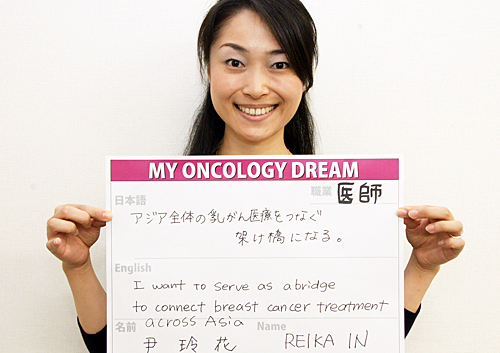 MY ONCOLOGY DREAM
日本語 職業 医師
アジア全体の乳がん医療をつなぐ
架け橋になる。
English
I want to serve as a bridge
to connect breast cancer treatment
across Asia
名前 Name
尹 玲花 REIKA IN